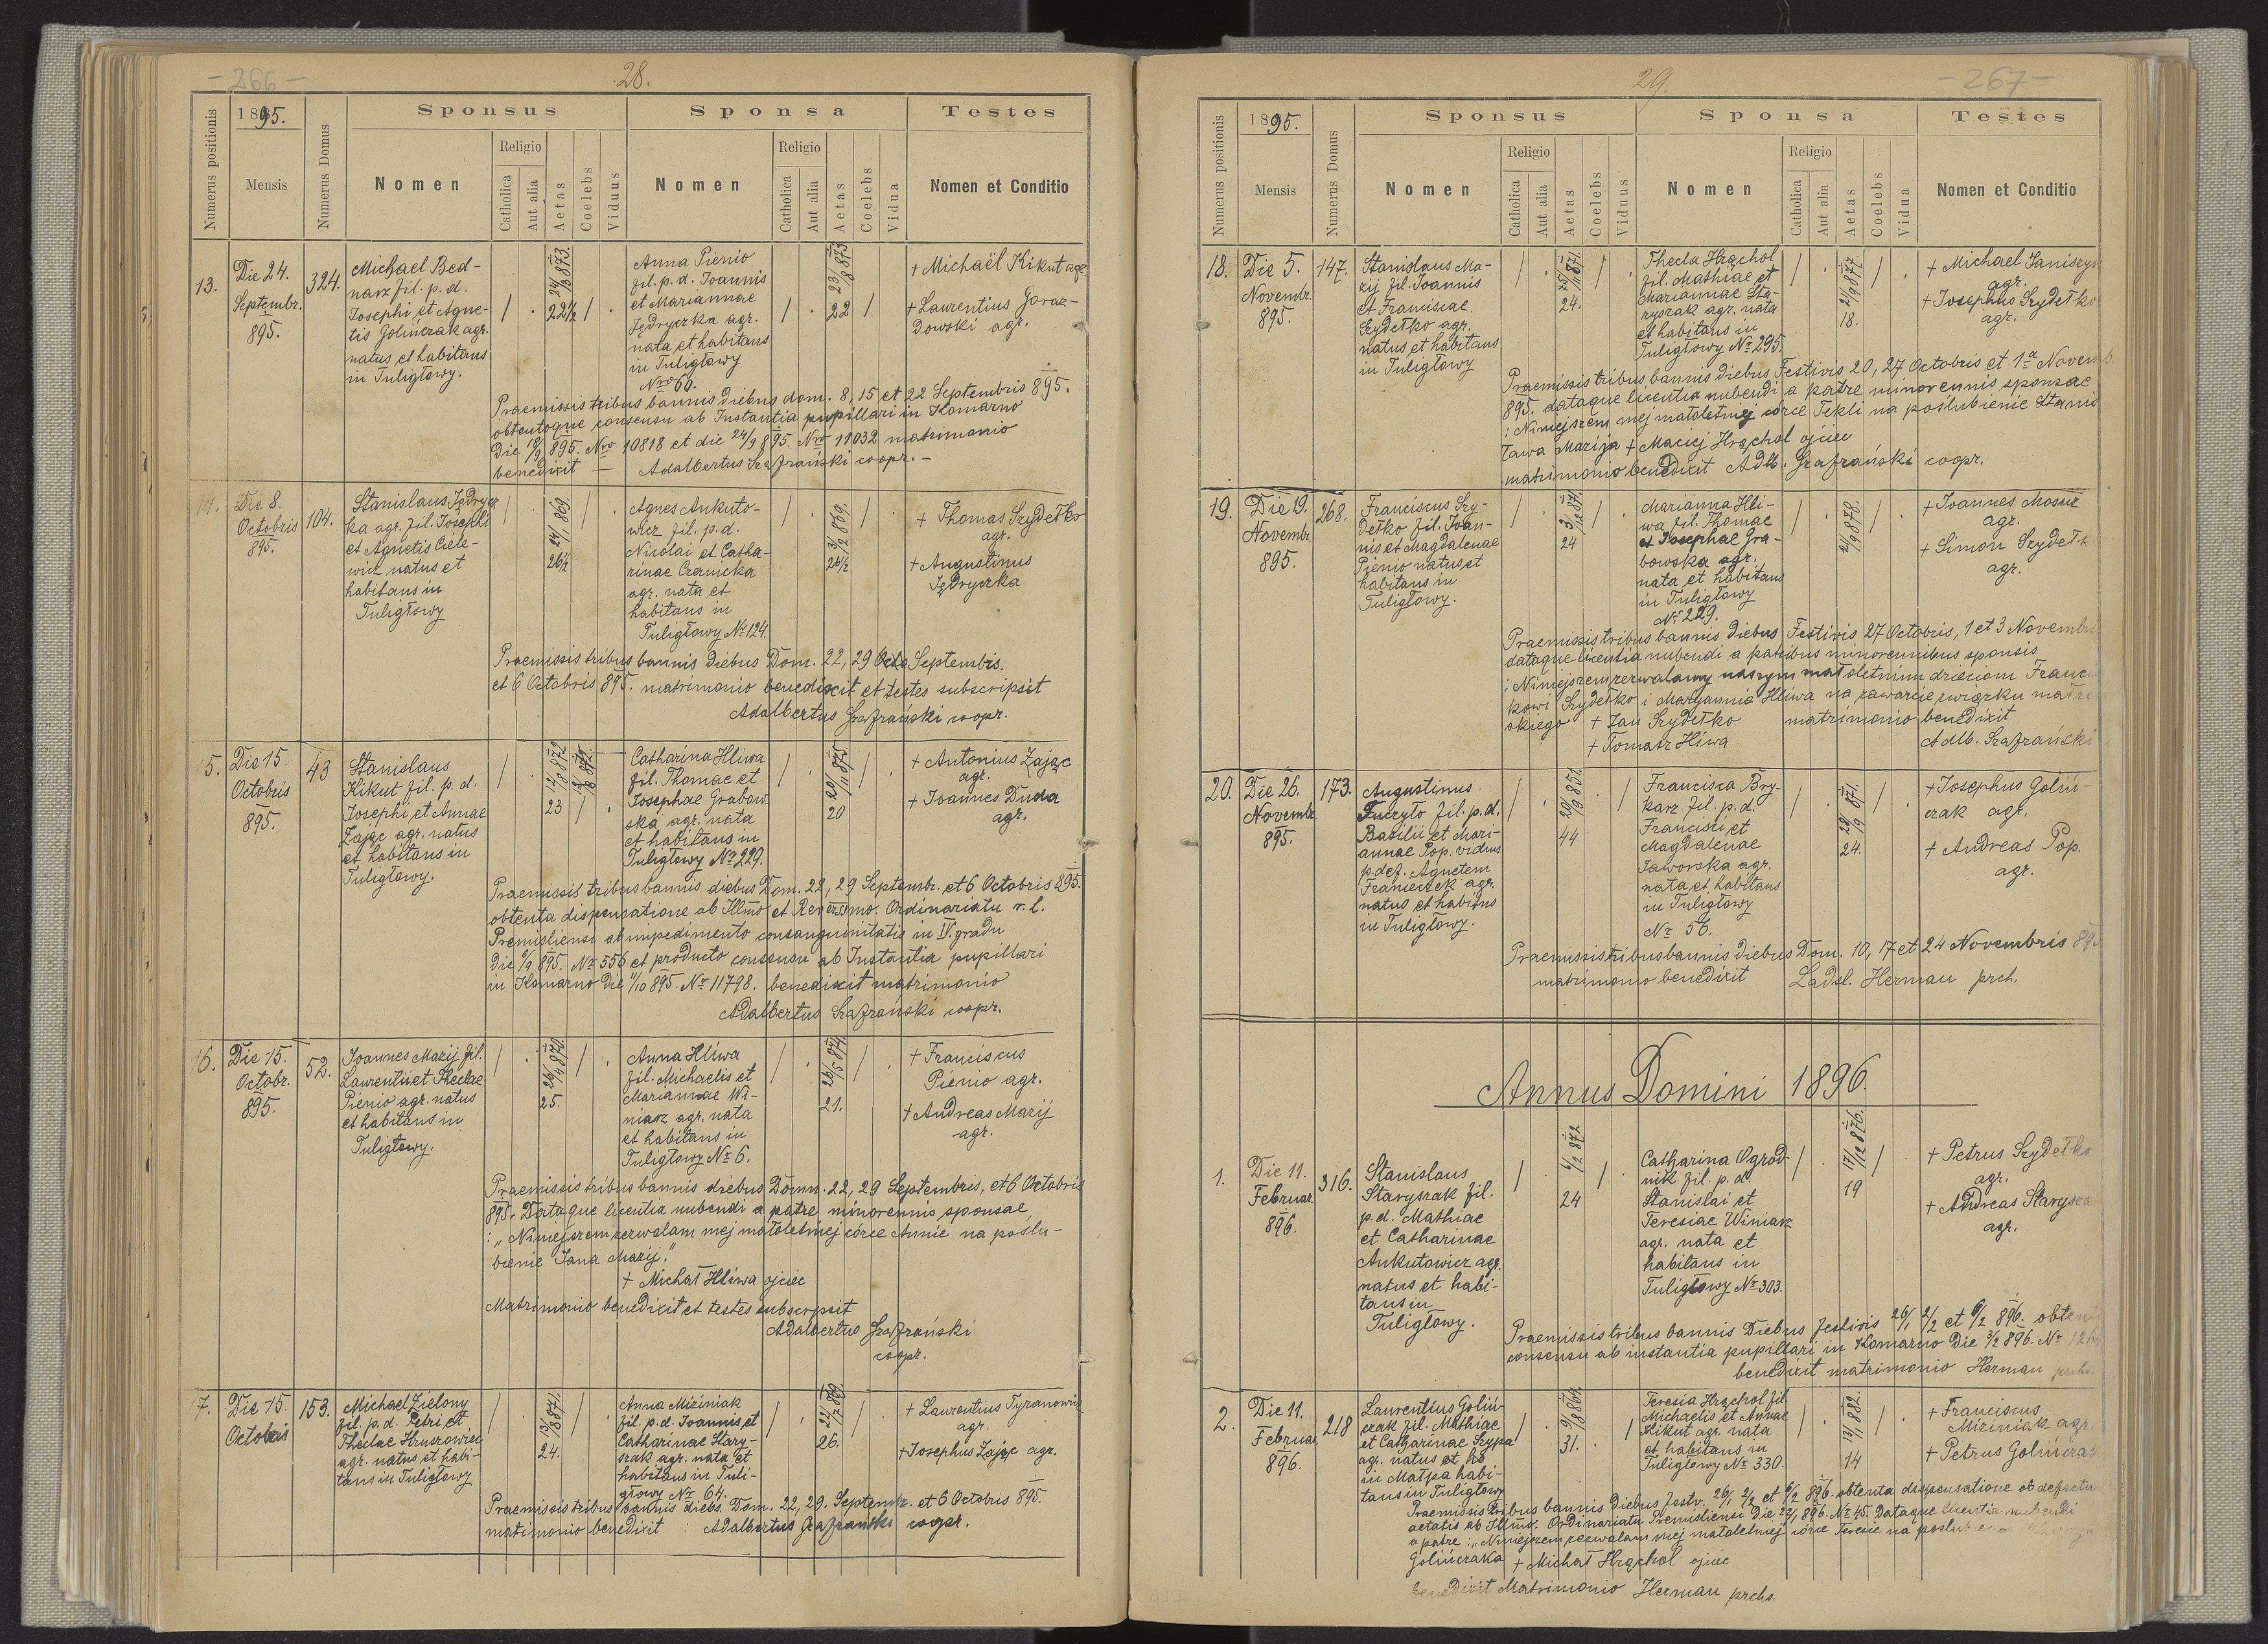 - 266 -
28.
Numerus positionis
1895.
Mensis
Numerus Domus
Sponsus
Nomen
Religio
Catholica
Aut alia
Aetas
Coelebs
Viduus
Sponsa
Nomen
Religio
Catholica
Aut alia
Aetas
Coelebs
Vidua
Testes
Nomen et Conditio
13.
Die 24.
Septembr.
895.
324.
Michael Bed-
narz fil. p. d.
Josephi et Agne-
tis Golińczak agr.
natus et habitans
in Tuligłowy.
24/8 873.
22 1/2
Anna Pienio
fil. p. d. Joannis
et Mariannae
Jędryczka agr.
nata et habitans
in Tuligłowy
Nro 60.
23/8 873
22
+ Michaël Kikut agr.
+ Laurentius Goraz-
dowski agr.
Praemissis tribus bannis diebus dom. 8, 15 et 22 Septembris 895.
obtentoque consensu ab Instantia pupillari in Komarno
die 18/9 895. Nro 10818 et die 24/9 895. Nro 11032 matrimonio
benedixit — Adalbertus Szafrański coopr. -
14.
Die 8.
Octobris
895.
104.
Stanislaus Jędrycz-
ka agr. fil. Josephi
et Agnetis Ciele-
wicz natus et
habitans in
Tuligłowy
24/1 869.
26 1/2
Agnes Ankuto-
wicz fil. p. d.
Nicolai et Catha-
rinae Czernicka
agr. nata et
habitans in
Tuligłowy Nr 124.
3/2 869.
26 1/2
+ Thomas Szydełko
agr.
+ Augustinus
Jędryczka
Praemissis tribus bannis diebus Dom. 22, 29 Septembris.
et 6 Octobris 895. matrimonio benedixit et testes subscripsit
Adalbertus Szafrański coopr.
15.
Die 15.
Octobris
895.
43
Stanislaus
Kikut fil. p. d.
Josephi et Annae
Zając agr. natus
et habitans in
Tuligłowy.
23
Catharina Hliwa
fil. Thomae et
Josephae Grabow-
ska agr. nata
et habitans in
Tuligłowy Nr 229.
20/11 875.
20
+ Antonius Zając
agr.
+ Joannes Duda
agr.
Praemissis tribus bannis diebus Dom. 22, 29 Septembr. et 6 Octobris 895.
obtenta dispensatione ab Illmo et Reverssmo. Ordinariatu r. l.
Premisliensi ab impedimento consanguinitatis in IV gradu
die 6/9 895. Nr 556 et producto consensu ab Instantia pupillari
in Komarno die 11/10 895. Nr 11798. benedixit matrimonio
Adalbertus Szafrański coopr.
16.
Die 15.
Octobr.
895.
52.
Joannes Mazij fil.
Laurentii et Theclae
Pienio agr. natus
et habitans in
Tuligłowy.
26/4 870.
25.
Anna Hliwa
fil. Michaelis et
Mariannae Wi-
niarz agr. nata
et habitans in
Tuligłowy Nr 6.
26/5 874.
21.
+ Franciscus
Pienio agr.
+ Andreas Mazij
agr.
Praemissis tribus bannis diebus Domn. 22, 29 Septembres, et 6 Octobris
895. Dataque licentia nubendi a patre minorennis sponsae
: „Niniejszem zezwalam mej małoletniej córce Annie na poślu-
bienie Jana Mazij."
+ Michał Hliwa ojciec
Matrimonio benedixit et testes subscrpsit
Adalbertus Szafrański
coopr.
17.
Die 15.
Octobris
153.
Michael Zielony
fil. p. d. Petri et
Theclae Hruszowiec
agr. natus et habi-
tans in Tuligłowy
13/8 871.
24.
Anna Miziniak
fil. p. d. Joannis et
Catharinae Stary-
szak agr. nata et
habitans in Tuli-
głowy Nr 64.
22/7 869.
26.
+ Laurentius Tyranowicz
agr.
+ Josephus Zając agr.
Praemissis tribus bannis diebs. Dom. 22, 29. Septembr. et 6 Octobris 895.
matimonio benedixit : Adalbertus Szafrański coopr.
29.
- 267 -
Numerus positionis
1895.
Mensis
Numerus Domus
Sponsus
Nomen
Religio
Catholica
Aut alia
Aetas
Coelebs
Viduus
Sponsa
Nomen
Religio
Catholica
Aut alia
Aetas
Coelebs
Vidua
Testes
Nomen et Conditio
18.
Die 5.
Novembr.
895.
147.
Stanislaus Ma-
zij fil. Joannis
et Franciscae
Szydełko agr.
natus et habitans
in Tuligłowy
24.
Thecla Hrąchol
fil. Mathiae et
Mariannae Sta-
ryszak agr. nata
et habitans in
Tuligłowy Nr 295.
21/9 877.
18.
+ Michael Saniszyn
agr.
+ Josephus Szydełko
agr.
Praemissis tribus bannis diebus Festivis 20, 27 Octobris et 1a Novemb
895. dataque licentia nubendi a patre minorennis sponsae
: Niniejszem mej małoletniej córce Tekli na poślubienie Stanis
ława Mazija + Maciej Hrąchol ojciec
matrimonio benedixit Adlb. Szafrański coopr.
19.
Die 19.
Novembr.
895.
268.
Franciscus Szy-
dełko fil. Joan-
nis et Magdalenae
Pienio natus et
habitans in
Tuligłowy.
3/12 871.
24
Marianna Hli-
wa fil. Thomae
et Josephae Gra-
bowska agr.
nata et habitans
in Tuligłowy
Nr 229.
21/9 878.
+ Joannes Mosur
agr.
+ Simon Szydełk
agr.
Praemissis tribus bannis diebus Festivis 27 Octobris, 1 et 3 Novembris
dataque licentia nubendi a patribus minorennibus sponsis
: Niniejszem zezwalamy naszym małoletnim dzieciom Francisz
kowi Szydełko i Maryannie Hliwa na zawarcie związku małżeń
skiego + Jan Szydełko matrimonio benedixit
+ Tomasz Hliwa Adlb. Szafrański
20.
Die 26.
Novembr.
895.
173.
Augustinus
Fuczyło fil. p. d.
Basilii et Mari-
annae Pop. viduus
p. def. Agnetem
Franciczek agr.
natus et habitns
in Tuligłowy.
20/9 851.
44
Francisca Bry-
karz fil. p. d.
Francisci et
Magdalenae
Jaworska agr.
nata et habitans
in Tuligłowy
Nr 56.
28/9 871.
24.
+ Josephus Goliń-
czak agr.
+ Andreas Pop.
agr.
Praemissis tribus bannis diebus Dom. 10, 17 et 24 Novembris 895
matrimonio benedixit Ladsl. Herman prch.
Annus Domini 1896.
1.
Die 11.
Februar.
896.
316.
Stanislaus
Staryszak fil.
p. d. Mathiae
et Catharinae
Ankutowicz agr.
natus et habi-
tans in
Tuligłowy.
6/2 872
24
Catharina Ogrod-
nik fil. p. d.
Stanislai et
Teresiae Winiarz
agr. nata et
habitans in
Tuligłowy Nr 303.
17/12 876.
19
+ Petrus Szydełko
agr.
+ Andreas Starysza
agr.
Praemissis tribus bannis Diebus festivis 26/1 2/2 et 9/2 896. obtento
consensu ab instantia pupillari in Komarno die 3/2 896. Nr
benedixit matrimonio Herman prchs.
2.
Die 11.
Februar
896.
218
Laurentius Goliń-
czak fil. Mathiae
et Catharinae Szypa
agr. natus et
in Małpa habi-
tans in Tuligłowy
9/8 864.
31.
Teresia Hrąchol fil.
Michaelis et Annae
Kikut agr. nata
et habitans in
Tuligłowy Nr 330.
13/1 882.
14
+ Franciscus
Miziniak agr.
+ Petrus Golińczak
Praemissis tribus bannis diebus festv. 26/1 2/2 et 9/2 896. obtenta dispensatione ab defectu
aetatis ab Illmo. Ordinariatu Premisliensi die 29/1 896. Nr 45. Dataque licentia nubendi
a patre : „Niniejszem zezwalam mej małoletniej córce Teresie na poślubienie
Golińczaka + Michał Hrąchol ojciec
benedixit Matrimonio Herman prchs.